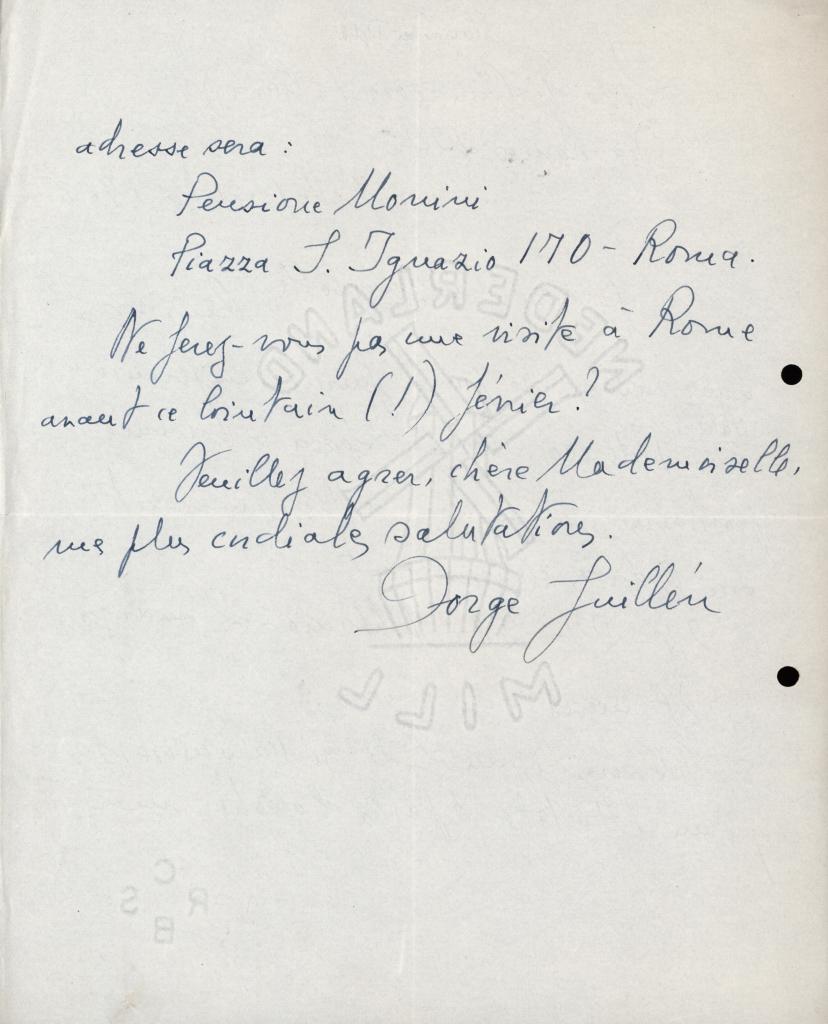 adresse sera :
Pensione Monini
Piazza S. Ignazio 170 - Roma.
Ne ferez-vous pas une visite à Rome
avant ce lointain (!) février ?
Veuillez agréer, chère Mademoiselle,
mes plus cordiales salutations.
Jorge Guillén
NEDERLAND
MILL
C
R S
B